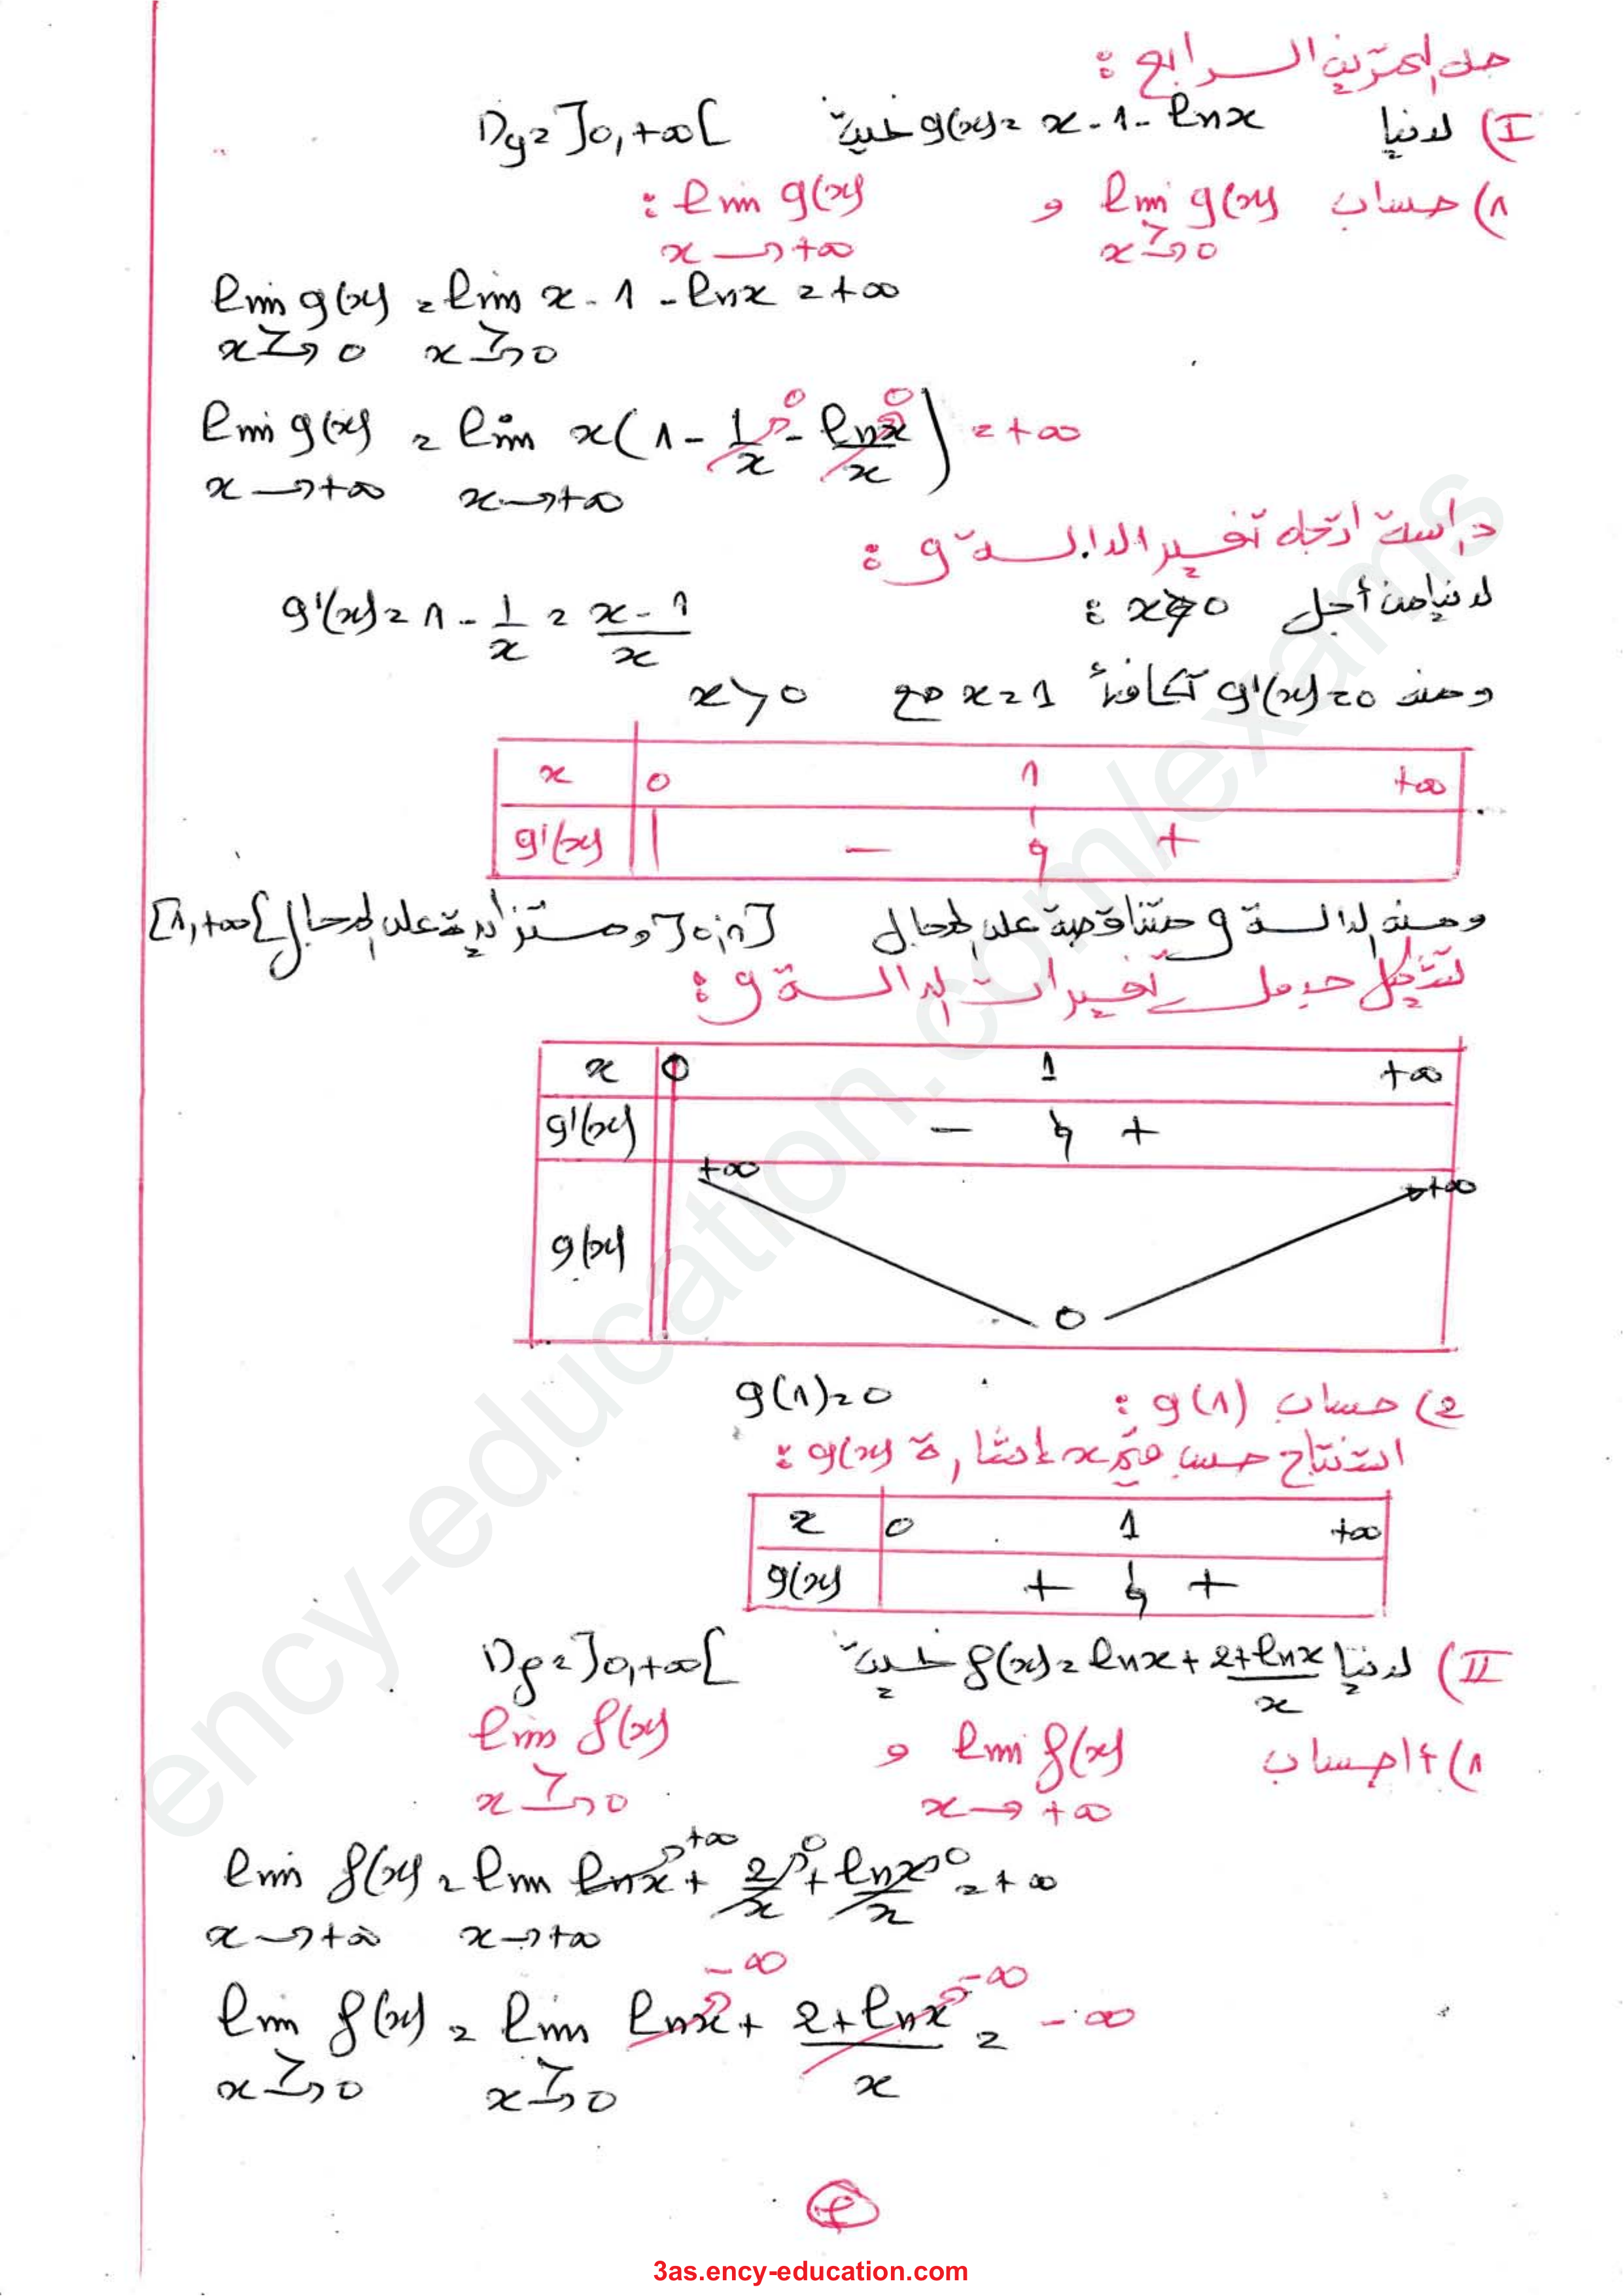 حل التمرين الرابع :
I) لدينا g(x) = x - 1 - lnx حيث Dg = ]0, +∞[
1) حساب lim g(x) و lim g(x) :
x >→ 0 x → +∞
lim g(x) = lim x - 1 - lnx = +∞
x >→ 0 x >→ 0
lim g(x) = lim x(1 - 1/x - lnx/x) = +∞
0 0
x → +∞ x → +∞
دراسة اتجاه تغير الدالة g :
لدينا من أجل x > 0 :
g'(x) = 1 - 1/x = x - 1/x
ومنه g'(x) = 0 تكافئ x = 1 مع x > 0
x 0 1 +∞
g'(x) - 0 +
ومنه الدالة g متناقصة على المجال ]0;1] ومتزايدة على المجال [1,+∞[
تشكيل جدول تغيرات الدالة g :
x 0 1 +∞
g'(x) - 0 +
g(x) +∞ 0 +∞
2) حساب g(1) : g(1) = 0
استنتاج حسب قيم x إشارة g(x) :
x 0 1 +∞
g(x) + 0 +
II) لدينا f(x) = lnx + 2+lnx/x حيث Df = ]0,+∞[
1) أ) حساب lim f(x) و lim f(x)
x → +∞ x >→ 0
lim f(x) = lim lnx + 2/x + lnx/x = +∞
+∞ 0 0
x → +∞ x → +∞
lim f(x) = lim lnx + 2+lnx/x = -∞
-∞ -∞
x >→ 0 x >→ 0
ency-education.com/exams
3as.ency-education.com